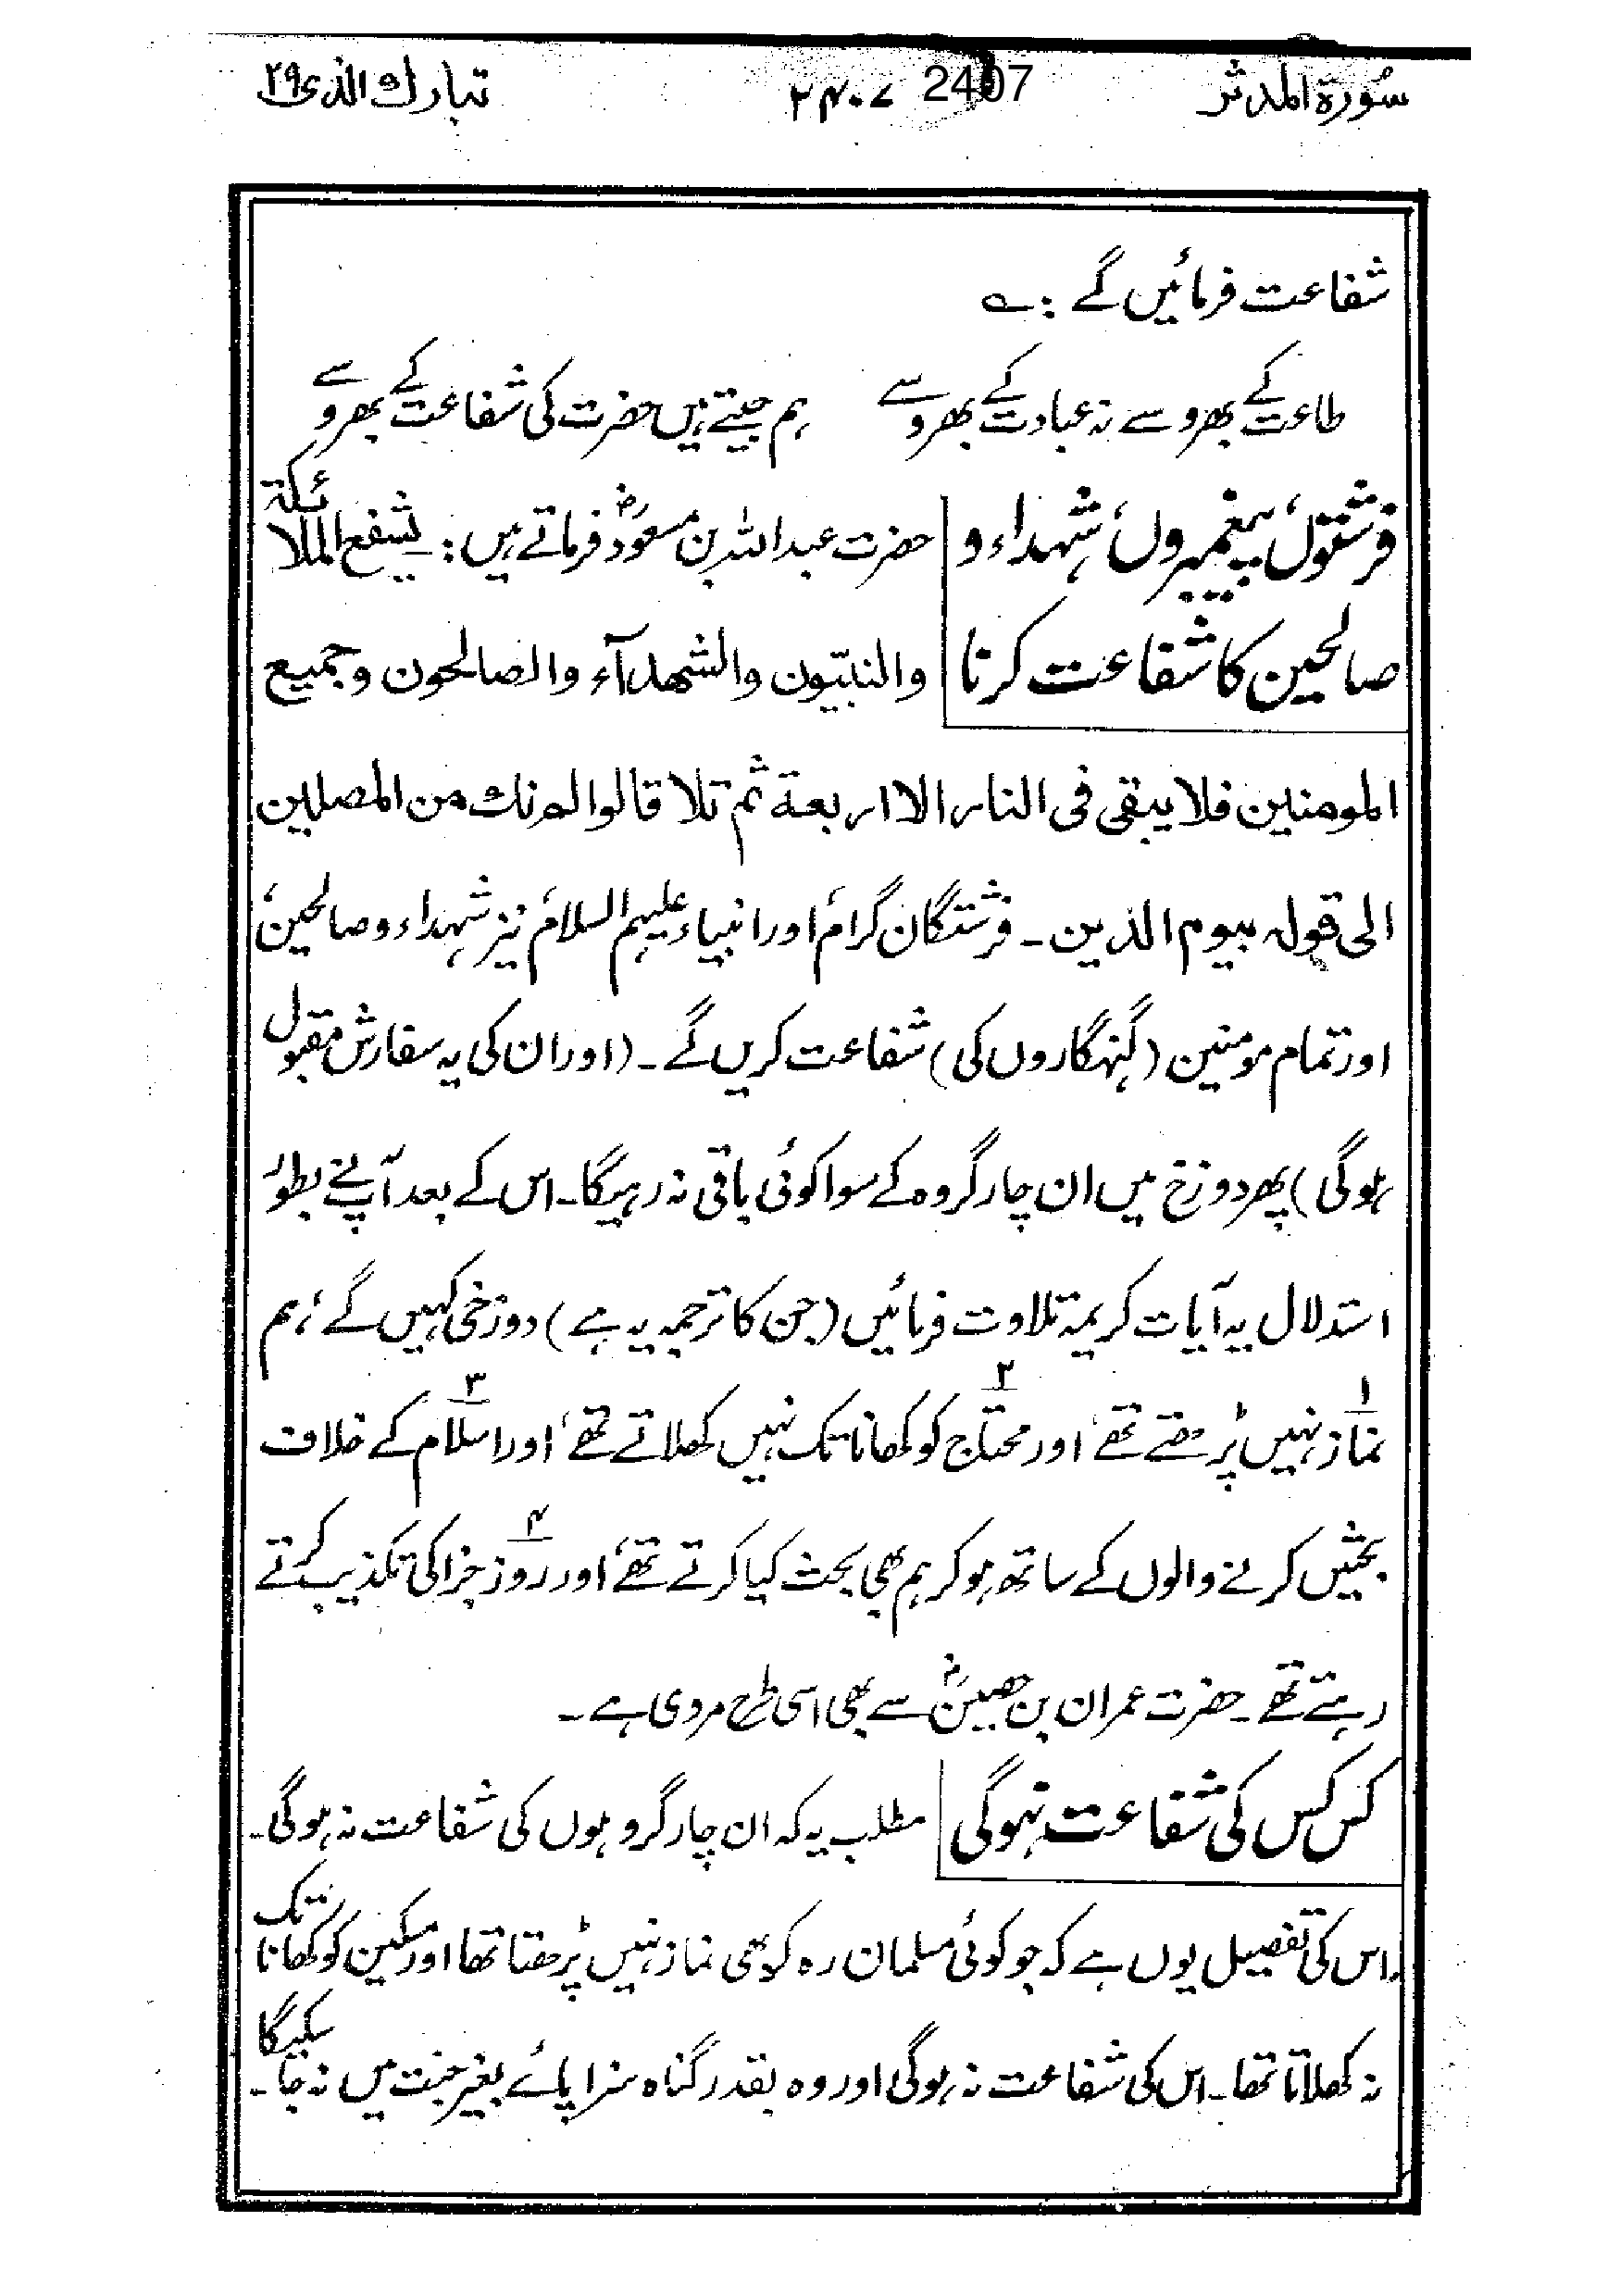 سُورة المدثر ۲۴۰۷ 2407 تبارك الذی ۲۹
شفاعت فرمائیں گے :ے
طاعت کے بھروسے نہ عبادت کے بھروسے ہم جیتے ہیں حضرت کی شفاعت کے بھروسے
فرشتوں، پیغمبروں، شہداء و
صالحین کا شفاعت کرنا
حضرت عبداللہ بن مسعودؓ فرماتے ہیں: یشفع الملائکة
والنبیّون والشهدآء والصالحون وجمیع
المومنین فلا یبقی فی النار الا اربعة ثم تلا قالوا لم نك من المصلین
الی قوله بیوم الدین۔ فرشتگان گرام، اور انبیاء علیہم السلام، نیز شہداء و صالحین،
اور تمام مومنین (گنہگاروں کی) شفاعت کریں گے۔ (اور ان کی یہ سفارش مقبول
ہوگی) پھر دوزخ میں ان چار گروہ کے سوا کوئی باقی نہ رہیگا۔ اس کے بعد آپنے بطور
استدلال یہ آیات کریمہ تلاوت فرمائیں (جن کا ترجمہ یہ ہے) دوزخی کہیں گے، ہم
۱ نماز نہیں پڑھتے تھے، اور ۲ محتاج کو کھانا تک نہیں کھلاتے تھے، اور ۳ اسلام کے خلاف
بحثیں کرنے والوں کے ساتھ ہو کر ہم بھی بحث کیا کرتے تھے، اور ۴ روز جزا کی تکذیب کرتے
رہتے تھے۔ حضرت عمران بن حصینؓ سے بھی اسی طرح مروی ہے۔
کس کس کی شفاعت نہوگی
مطلب یہ کہ ان چار گروہوں کی شفاعت نہ ہوگی۔
اس کی تفصیل یوں ہے کہ جو کوئی مسلمان رہ کر بھی نماز نہیں پڑھتا تھا اور مسکین کو کھانا تک
نہ کھلاتا تھا۔ اس کی شفاعت نہ ہوگی اور وہ بقدر گناہ سزا پائے بغیر جنت میں نہ جا سکیگا۔